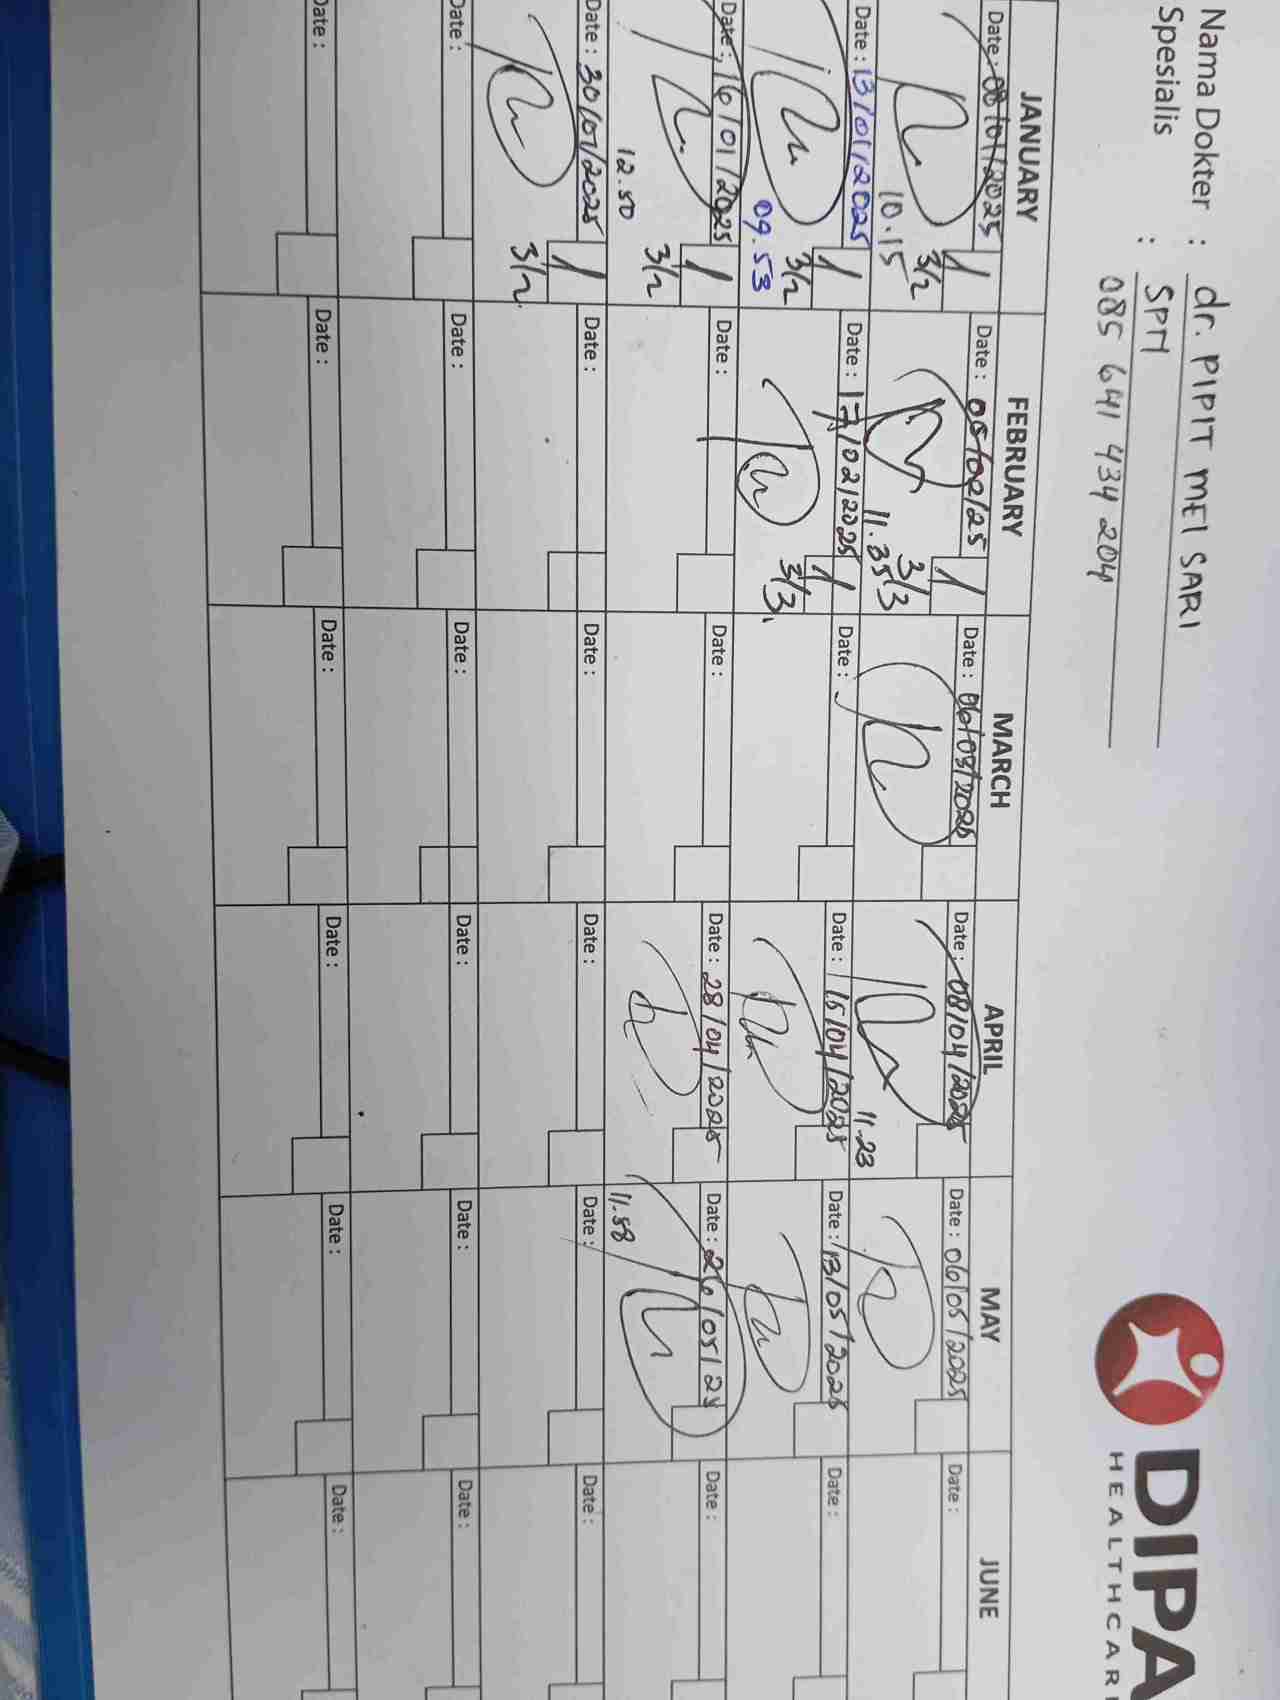 Nama Dokter : dr. PIPIT MEI SARI
Spesialis : SPM
085 641 434 204
DIPA
HEALTHCAR
JANUARY FEBRUARY MARCH APRIL MAY JUNE
Date : 08/01/2025 1 Date : 05/02/25 1 Date : 06/03/2025 Date : 08/04/2025 Date : 06/05/2025 Date :
10.15 3/2 11.35 3/3 11.23
Date : 13/01/2025 1 Date : 17/02/2025 1 Date : Date : 15/04/2025 Date : 13/05/2025 Date :
09.53 3/2 3/3
Date : 16/01/2025 1 Date : Date : Date : 28/04/2025 Date : 26/05/25 Date :
12.50 3/2 11.58
Date : 30/01/2025 1 Date : Date : Date : Date : Date :
3/2
Date : Date : Date : Date : Date : Date :
Date : Date : Date : Date : Date : Date :